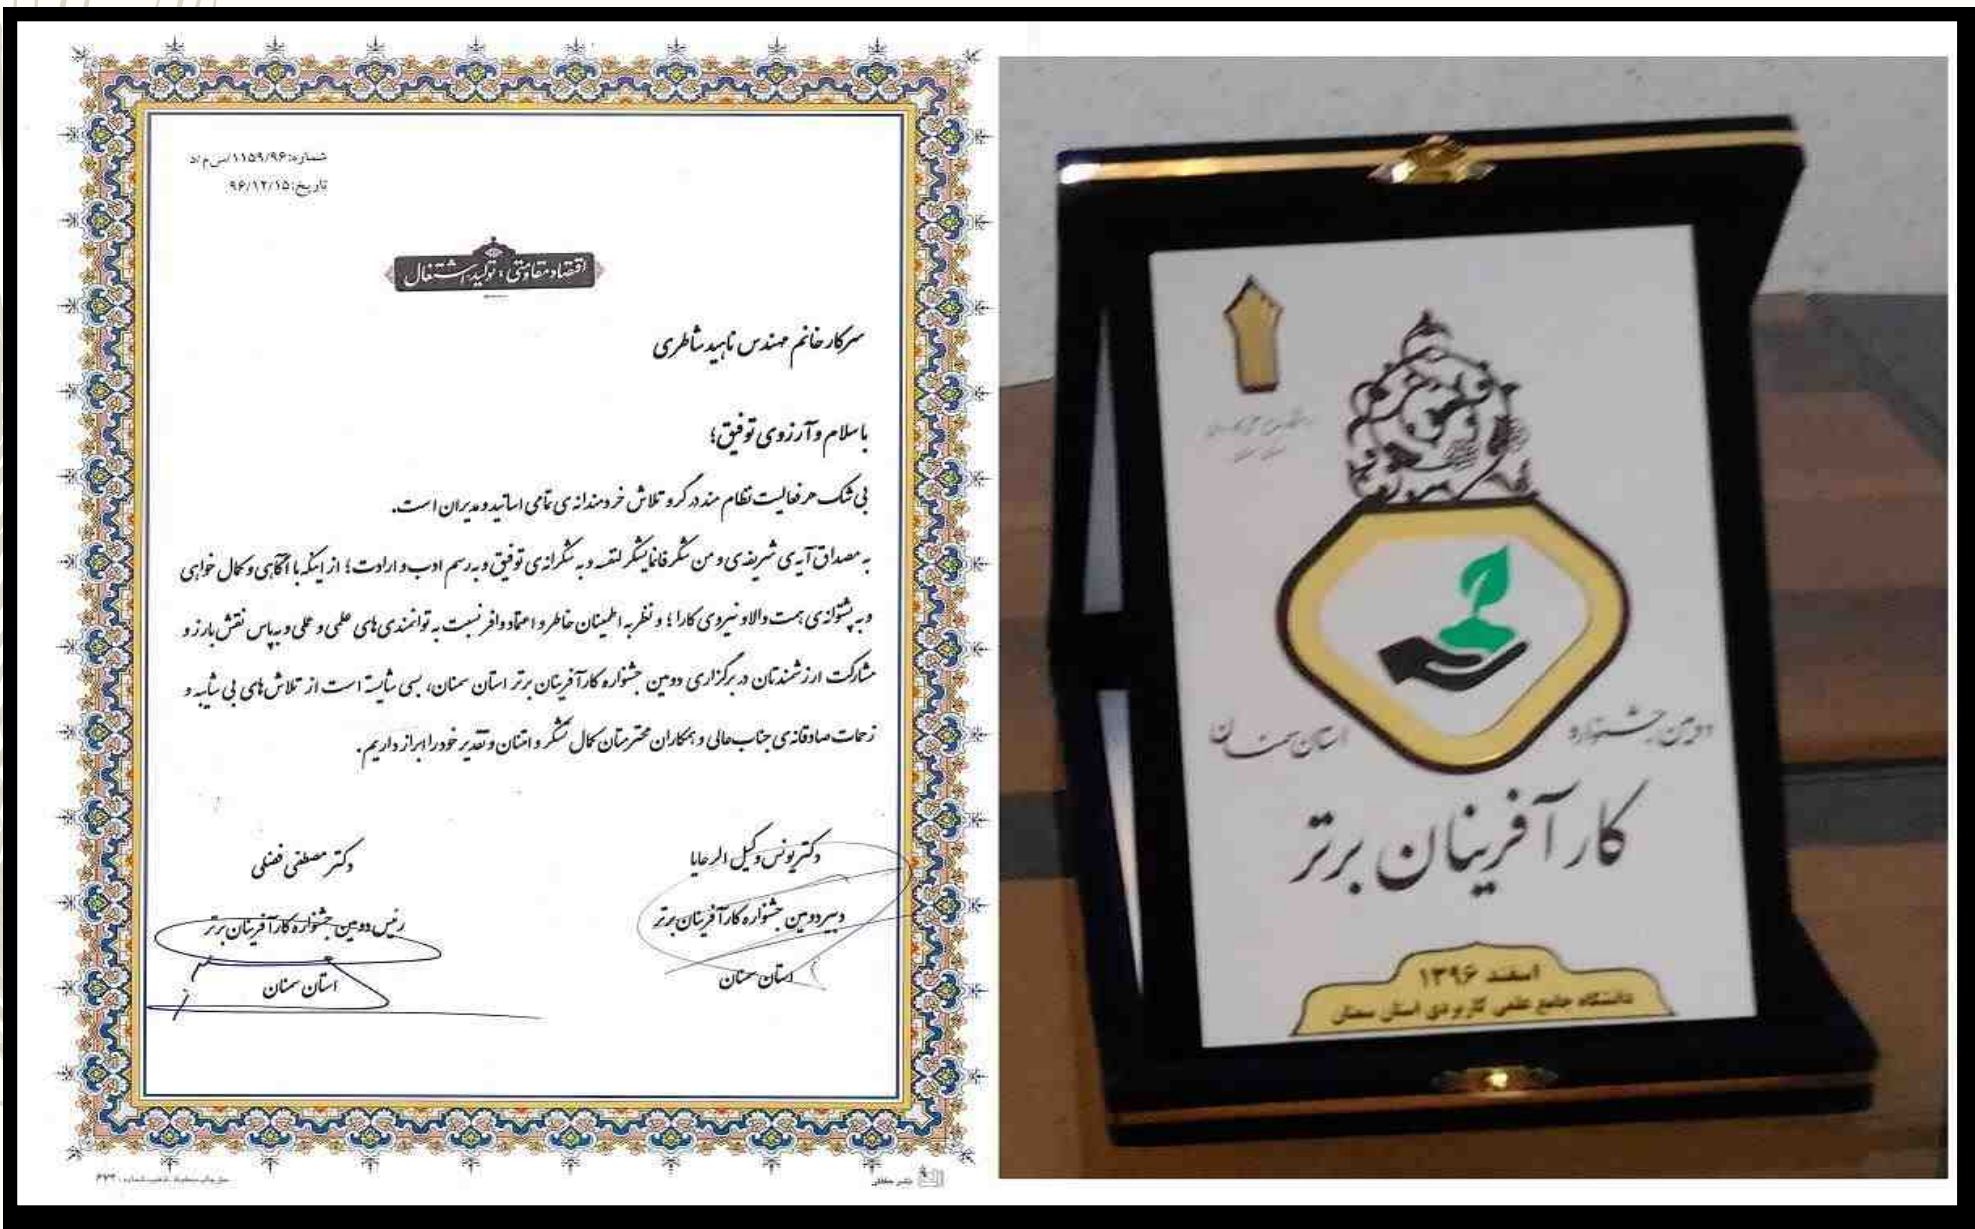 شماره: ۱۱۵۹/۹۶/س م /د
تاریخ: ۹۶/۱۲/۱۵
اقتصاد مقاومتی؛ تولید - اشتغال
سرکار خانم مهندس ناهید شاطری
با سلام و آرزوی توفیق؛
بی شک هر فعالیت نظام مند در گرو تلاش خردمندانه ی تمامی اساتید و مدیران است.
به مصداق آیه ی شریفه ی و من شکر فانما یشکر لنفسه و به شکرانه ی توفیق و به رسم ادب و ارادت؛ از اینکه با آگاهی و کمال خواهی
و به پشتوانه ی همت والا و نیروی کارا؛ و نظر به اطمینان خاطر و اعتماد وافر نسبت به توانمندی های علمی و عملی و به پاس نقش بارز و
مشارکت ارزشمندتان در برگزاری دومین جشنواره کارآفرینان برتر استان سمنان، بسی شایسته است از تلاش های بی شایبه و
زحمات صادقانه ی جناب عالی و همکاران محترمتان کمال تشکر و امتنان و تقدیر خود را ابراز داریم.
دکتر یونس وکیل الرعایا
دبیر دومین جشنواره کارآفرینان برتر
استان سمنان
دکتر مصطفی فضلی
رئیس دومین جشنواره کارآفرینان برتر
استان سمنان
دومین جشنواره
استان سمنان
کارآفرینان برتر
اسفند ۱۳۹۶
دانشگاه جامع علمی کاربردی استان سمنان